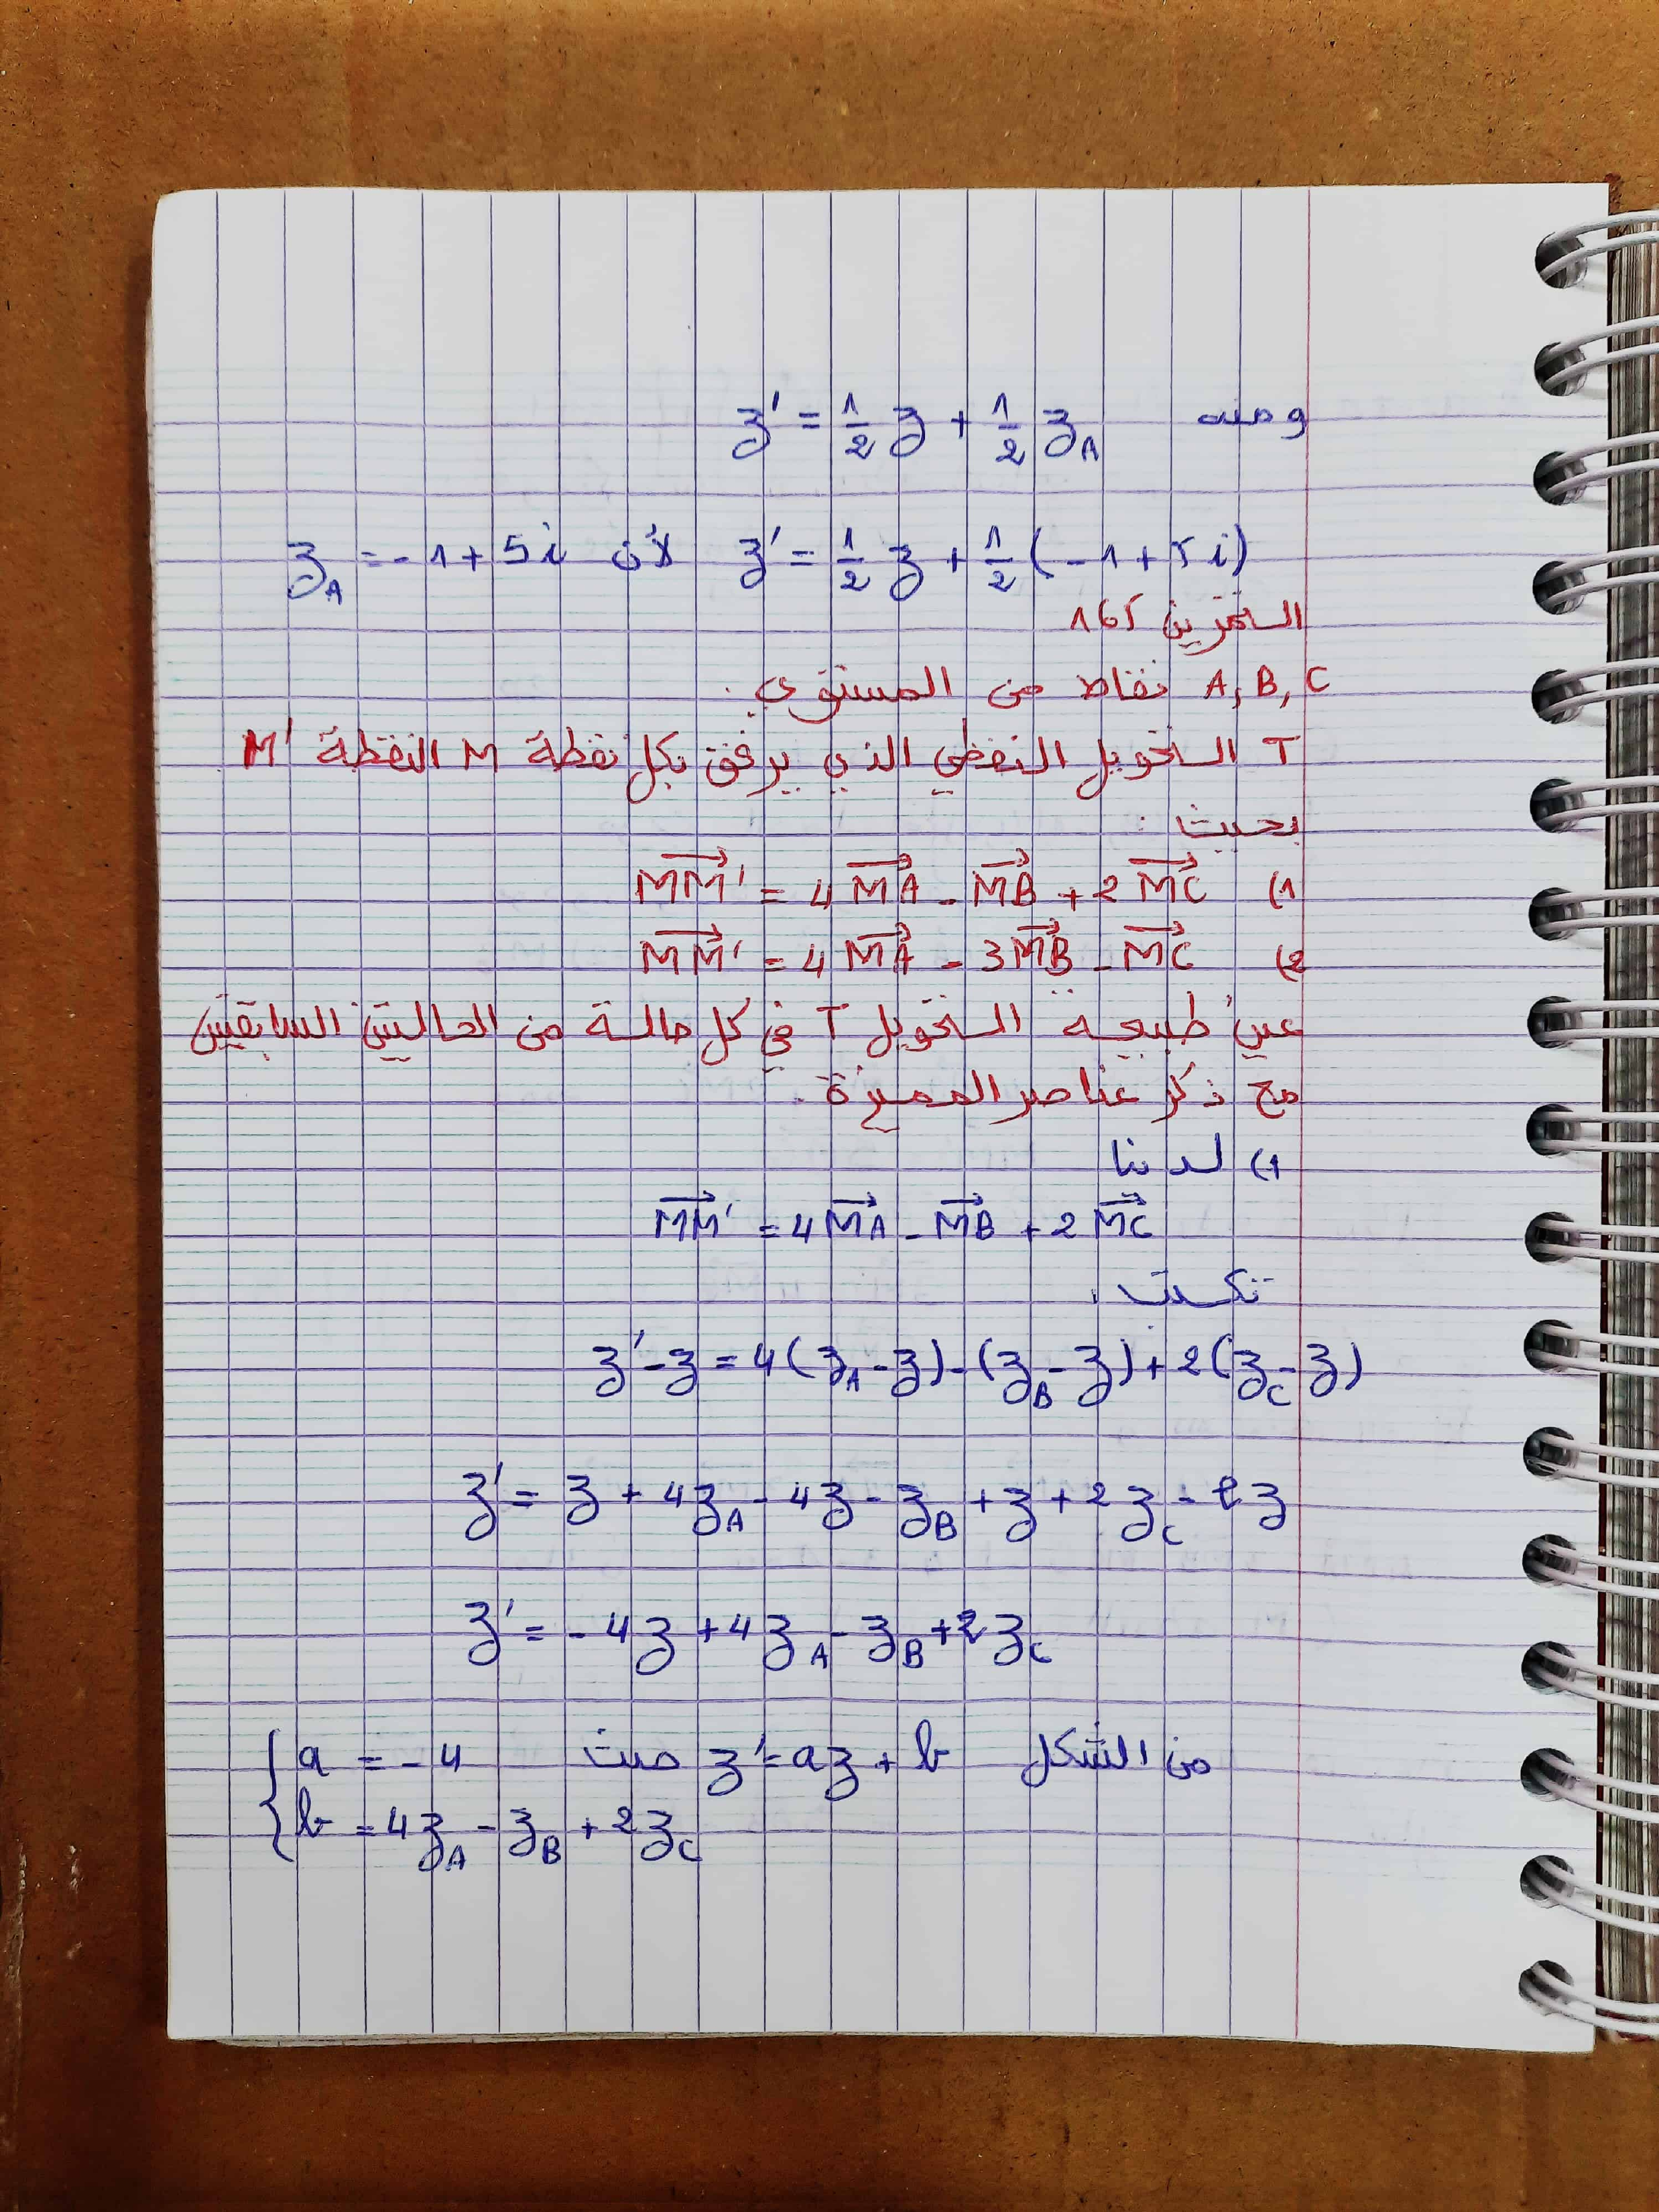 ومنه z' = 1/2 z + 1/2 z_A
z' = 1/2 z + 1/2 (-1 + 5i) لأن z_A = -1 + 5i
التمرين 165
A, B, C نقاط من المستوي.
T التحويل النقطي الذي يرفق بكل نقطة M النقطة M'
بحيث :
1) \overrightarrow{MM'} = 4\overrightarrow{MA} - \overrightarrow{MB} + 2\overrightarrow{MC}
2) \overrightarrow{MM'} = 4\overrightarrow{MA} - 3\overrightarrow{MB} - \overrightarrow{MC}
عين طبيعة التحويل T في كل حالة من الحالتين السابقتين
مع ذكر عناصر المميزة.
1) لدينا
\overrightarrow{MM'} = 4\overrightarrow{MA} - \overrightarrow{MB} + 2\overrightarrow{MC}
تكتب :
z' - z = 4(z_A - z) - (z_B - z) + 2(z_C - z)
z' = z + 4z_A - 4z - z_B + z + 2z_C - 2z
z' = -4z + 4z_A - z_B + 2z_C
من الشكل z' = az + b حيث { a = -4
b = 4z_A - z_B + 2z_C